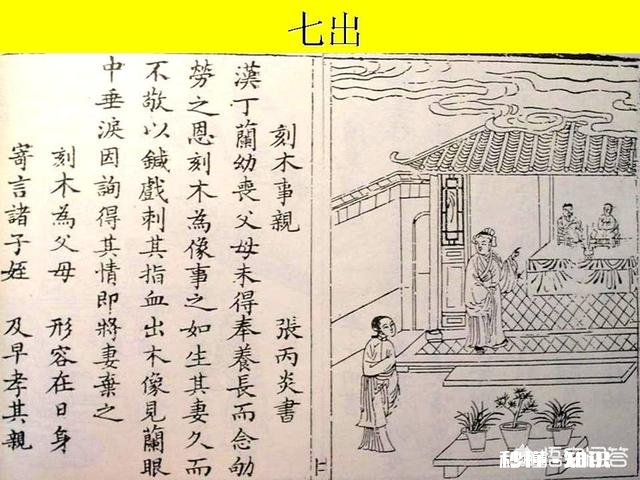 七出
刻木事親 張丙炎書
漢丁蘭幼喪父母未得奉養長而念劬
勞之恩刻木為像事之如生其妻久而
不敬以鍼戲刺其指血出木像見蘭眼
中垂淚因詢得其情即將妻棄之
刻木為父母 形容在日身
寄言諸子姪 及早孝其親